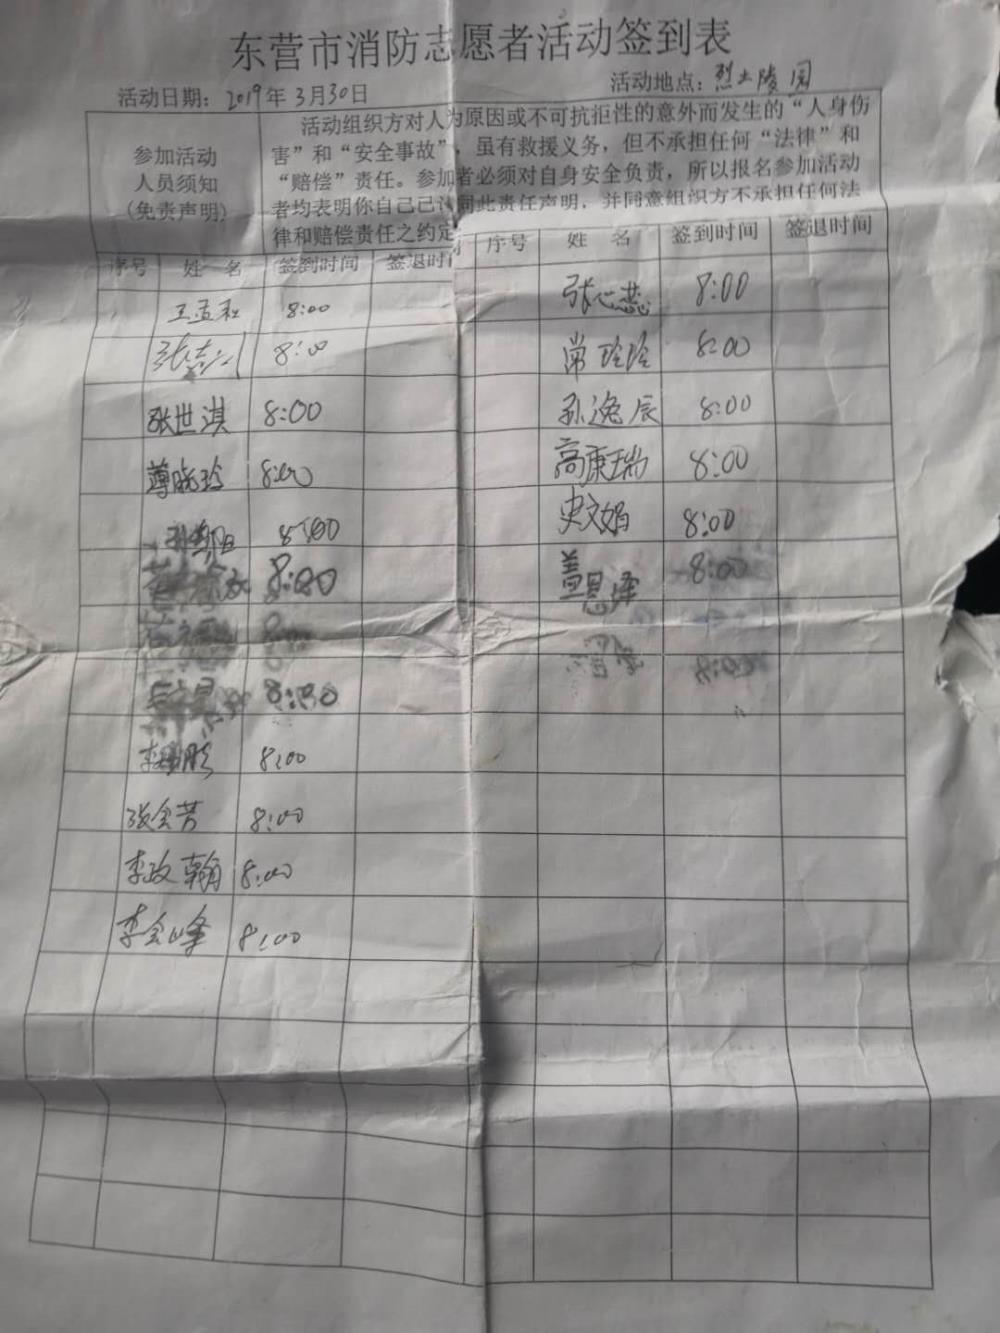 东营市消防志愿者活动签到表
活动日期：2019年3月30日 活动地点：烈士陵园
参加活动
人员须知
（免责声明）
活动组织方对人为原因或不可抗拒性的意外而发生的“人身伤
害”和“安全事故”，虽有救援义务，但不承担任何“法律”和
“赔偿”责任。参加者必须对自身安全负责，所以报名参加活动
者均表明你自己已认同此责任声明，并同意组织方不承担任何法
律和赔偿责任之约定
序号 姓 名 签到时间 签退时间 序号 姓 名 签到时间 签退时间
8:00 张心蕊 8:00
8:00 常玲玲 8:00
张世淇 8:00 孙逸辰 8:00
薄晓玲 8:00 高康瑞 8:00
8:00 史文娟 8:00
8:00 盖恩泽 8:00
8:00
8:00
李 8:00
张会芳 8:00
李政翰 8:00
李会峰 8:00